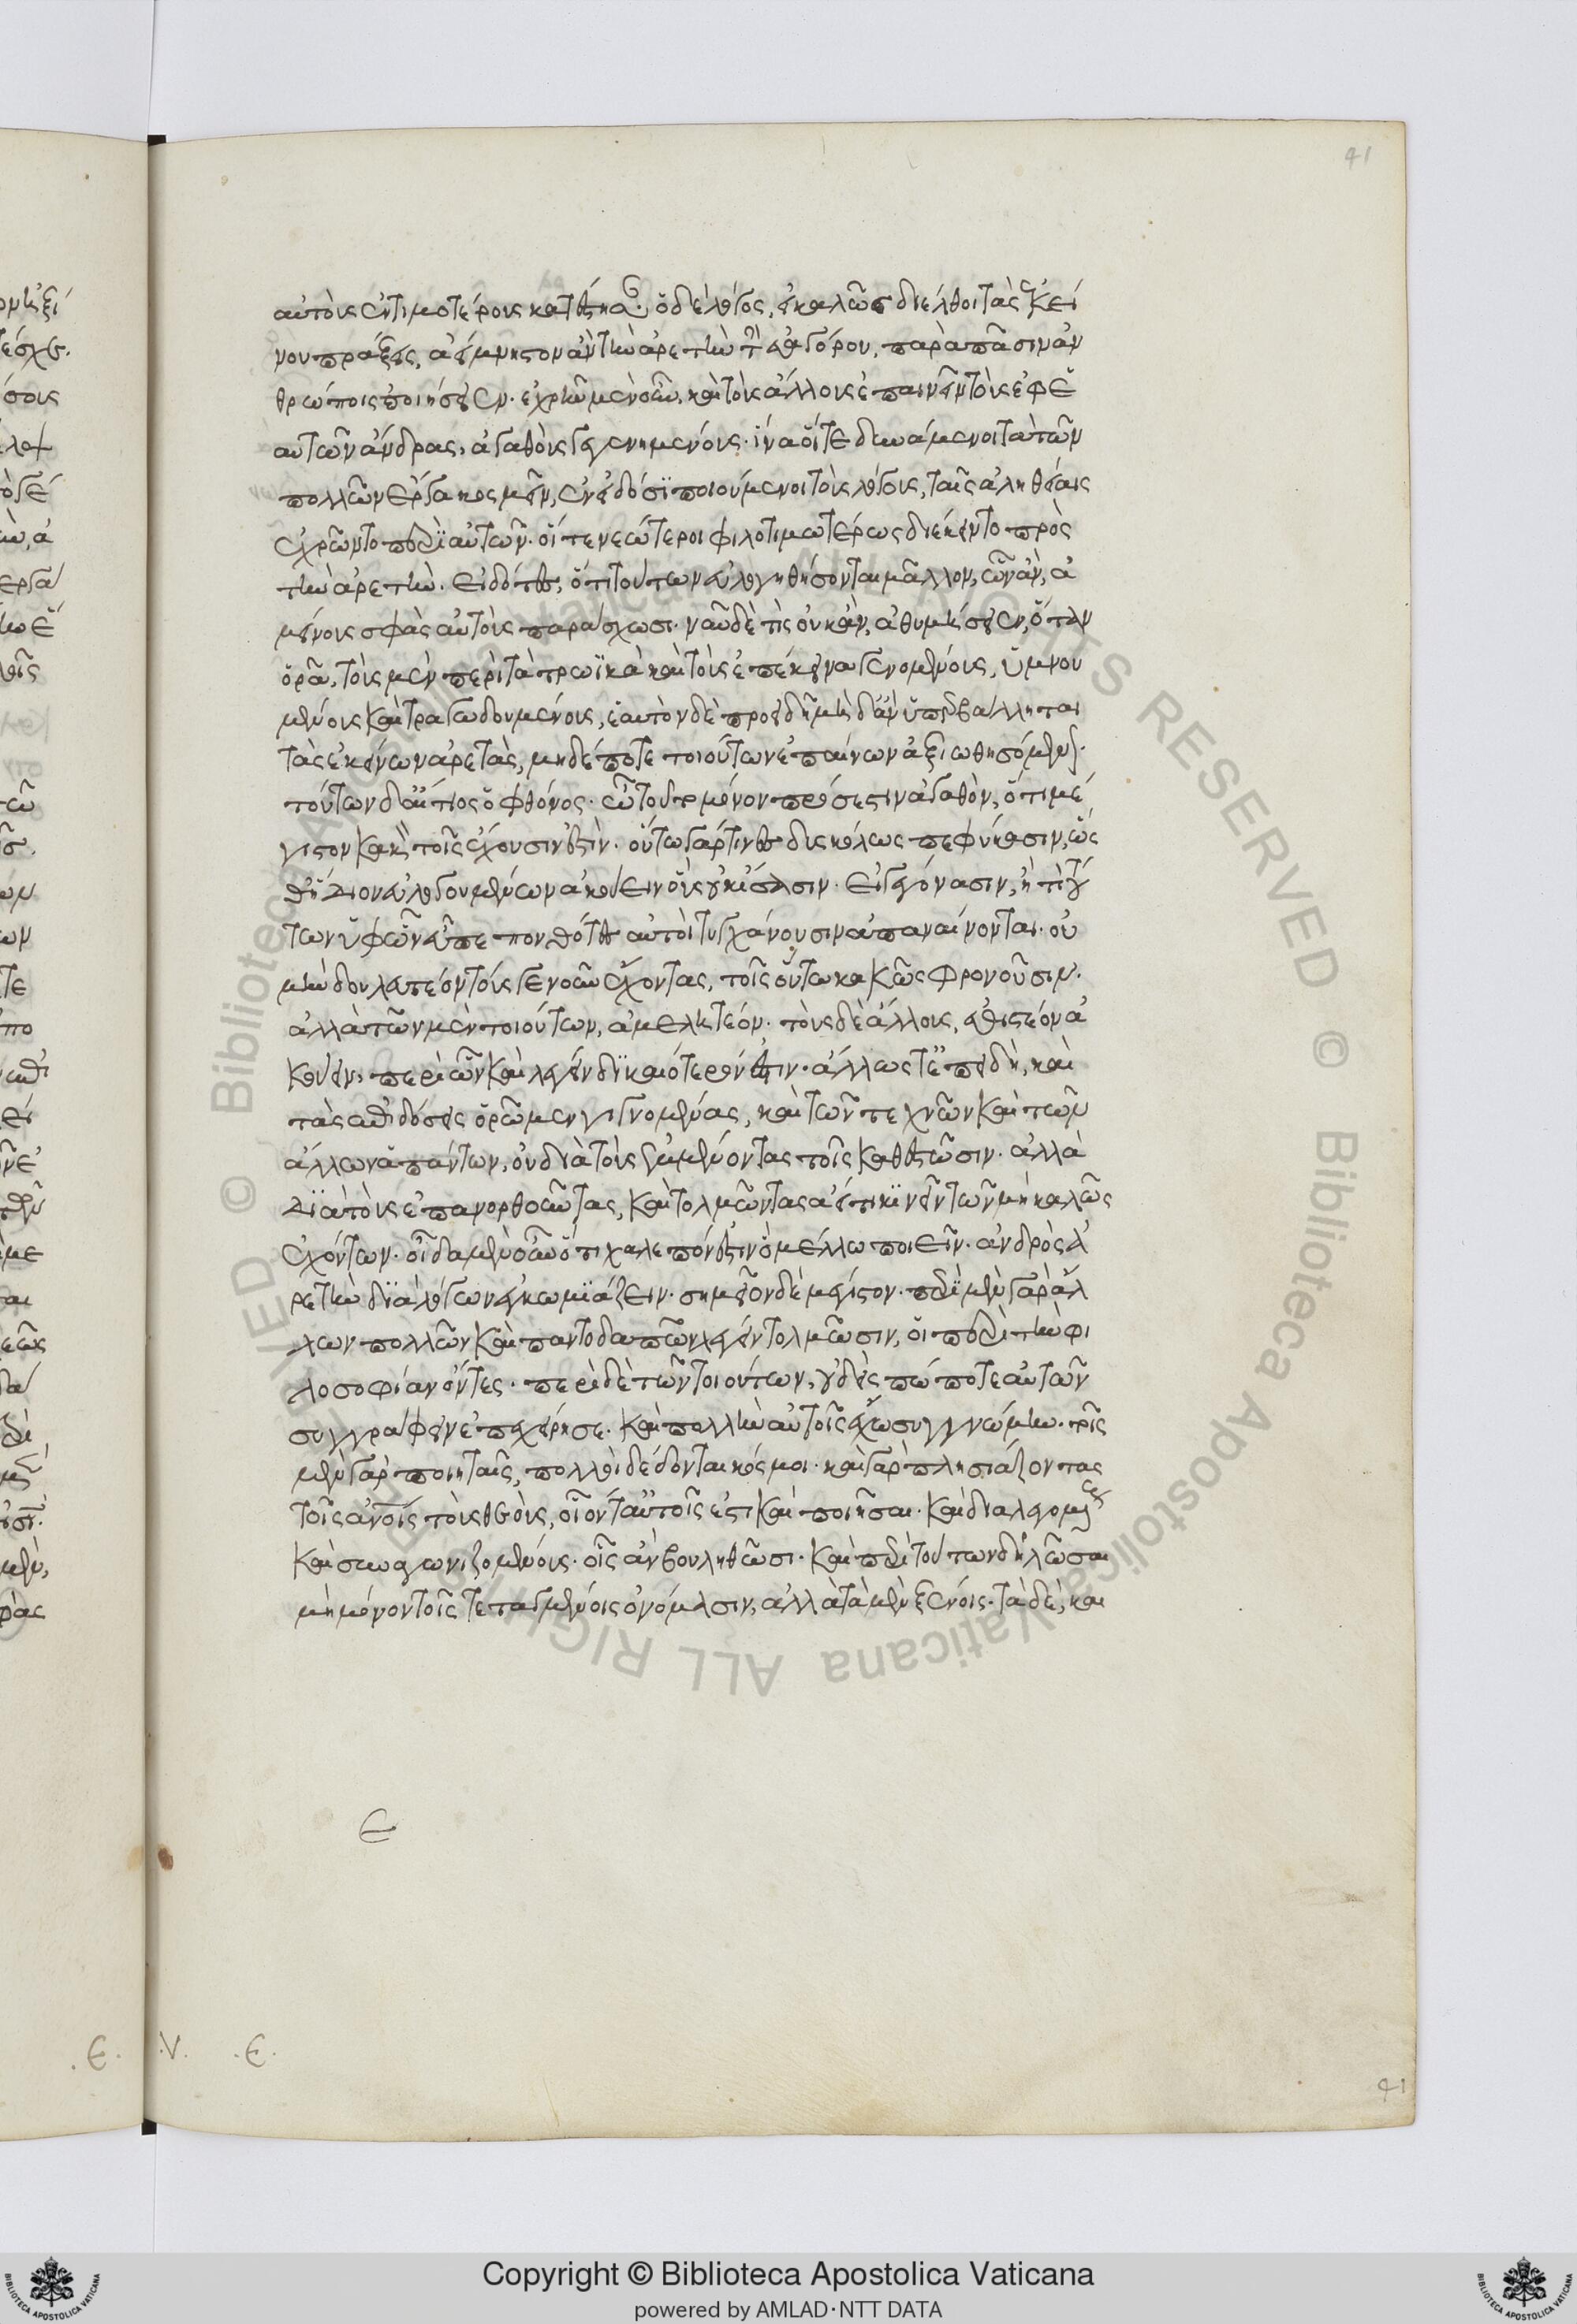 41
αὐτοὺς ἐντιμοτέρους κατέστησεν· ὁ δὲ λόγος, εἰ καλῶς διέλθοι τὰς ἐκεί
νου πράξεις, ἀείμνηστον ἂν τὴν ἀρετὴν τὴν εὐαγόρου, παρὰ πᾶσιν ἀν
θρώποις ποιήσειεν· ἐχρῆν μὲν οὖν, καὶ τοὺς ἄλλους ἐπαινεῖν τοὺς ἐφ' ἑ
αυτῶν ἄνδρας, ἀγαθοὺς γεγενημένους· ἵνα οἵ τε δυνάμενοι τὰ τῶν
πολλῶν ἔργα κοσμεῖν, ἐν εἰδόσι ποιούμενοι τοὺς λόγους, ταῖς ἀληθείαις
ἐχρῶντο περὶ αὐτῶν· οἵ τε νεώτεροι φιλοτιμωτέρως διέκειντο πρὸς
τὴν ἀρετήν· εἰδότες, ὅτι τούτων εὐλογηθήσονται μᾶλλον, ὧν ἂν, ἀ
μείνους σφᾶς αὐτοὺς παράσχωσι· νῦν δὲ τίς οὐκ ἂν, ἀθυμήσειεν, ὅταν
ὁρᾷ, τοὺς μὲν περὶ τὰ τρωϊκὰ καὶ τοὺς ἐπέκεινα γενομένους, ὑμνου
μένους καὶ τραγωδουμένους, ἑαυτὸν δὲ προειδῇ μηδ' ἂν ὑπερβάλληται
τὰς ἐκείνων ἀρετὰς, μηδέποτε τοιούτων ἐπαίνων ἀξιωθησόμενον·
τούτων δ' αἴτιος ὁ φθόνος· ᾧ τοῦτο μόνον πρόσεστιν ἀγαθὸν, ὅτι μέ
γιστον κακὸν τοῖς ἔχουσιν ἐστίν· οὕτω γάρ τινες δυσκόλως πεφύκασιν, ὥς
θ' ἥδιον εὐλογουμένων ἀκούειν οὓς οὐκ ἴσασιν εἰ γεγόνασιν, ἢ τού
των ὑφ' ὧν εὖ πεπονθότες αὐτοὶ τυγχάνουσιν ἀπαναίνονται· οὐ
μὴν δουλευτέον τοὺς γε νοῦν ἔχοντας, τοῖς οὕτω κακῶς φρονοῦσιν·
ἀλλὰ τῶν μὲν τοιούτων, ἀμελητέον· τοὺς δὲ ἄλλους, ἐθιστέον ἀ
κούειν, περὶ ὧν καὶ λέγειν δικαιότερόν ἐστιν· ἄλλως τ' ἐπειδὴ, καὶ
τὰς ἐπιδόσεις ὁρῶμεν γιγνομένας, καὶ τῶν τεχνῶν καὶ τῶν
ἄλλων ἁπάντων, οὐ διὰ τοὺς ἐμμένοντας τοῖς καθεστῶσιν· ἀλλὰ
διὰ τοὺς ἐπανορθοῦντας, καὶ τολμῶντας ἀεί τι κινεῖν τῶν μὴ καλῶς
ἐχόντων· οἶδα μὲν οὖν ὅτι χαλεπόν ἐστιν ὃ μέλλω ποιεῖν· ἀνδρὸς ἀ
ρετὴν διὰ λόγων ἐγκωμιάζειν· σημεῖον δὲ μέγιστον· περὶ μὲν γὰρ ἄλ
λων πολλῶν καὶ παντοδαπῶν λέγειν τολμῶσιν, οἱ περὶ τὴν φι
λοσοφίαν ὄντες· περὶ δὲ τῶν τοιούτων, οὐδεὶς πώποτε αὐτῶν
συγγράφειν ἐπεχείρησε· καὶ πολλὴν αὐτοῖς ἔχω συγγνώμην· τοῖς
μὲν γὰρ ποιηταῖς, πολλοὶ δέδονται κόσμοι· καὶ γὰρ πλησιάζοντας
τοῖς ἀνοις τοὺς θεοὺς, οἷόν τ' αὐτοῖς ἐστὶ καὶ ποιῆσαι· καὶ διαλεγομένους
καὶ συναγωνιζομένους· οἷς ἂν βουληθῶσι· καὶ περὶ τούτων δηλῶσαι
μὴ μόνον τοῖς τεταγμένοις ὀνόμασιν, ἀλλὰ τὰ μὲν ξένοις· τὰ δὲ, και
Є
.Є. .V. .Є.
41
Copyright © Biblioteca Apostolica Vaticana
powered by AMLAD·NTT DATA